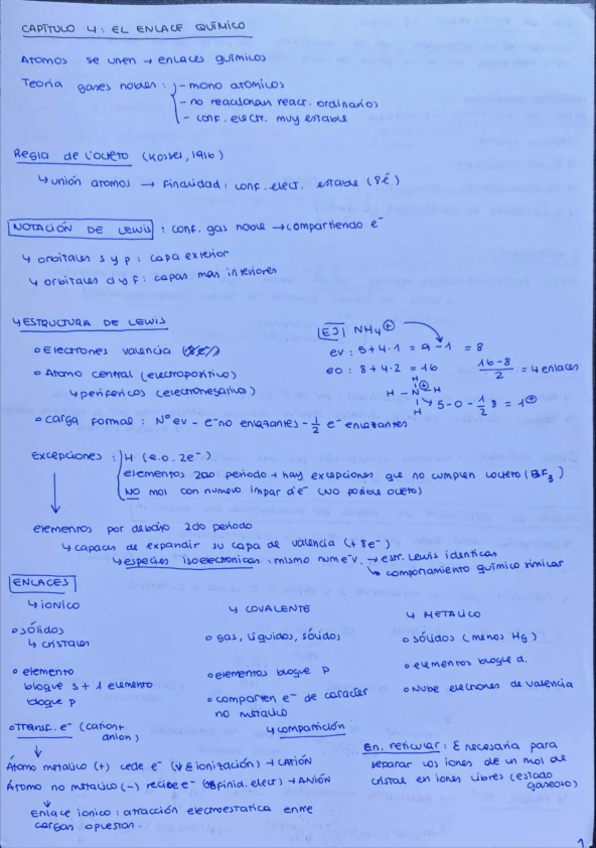 CAPÍTULO 4: EL ENLACE QUÍMICO
Átomos se unen → enlaces químicos
Teoría gases nobles: - mono atómicos
- no reaccionan reacc. ordinarios
- conf. electr. muy estable
Regla de l'octeto (Kossel, 1916)
↳ unión átomos → Finalidad: conf. elect. estable (8é)
NOTACIÓN DE LEWIS : conf. gas noble → compartiendo e⁻
↳ orbitales s y p: capa exterior
↳ orbitales d y f: capas más interiores
↳ ESTRUCTURA DE LEWIS
o Electrones valencia
o Átomo central (electropositivo)
↳ periféricos (electronegativo)
o Carga formal: Nº ev - e⁻ no enlazantes - 1/2 e⁻ enlazantes
EJ NH4⊕
ev: 5+4·1 = 9-1 = 8
eo: 8+4·2 = 16
16-8/2 = 4 enlaces
H
H - N - H ⊕
H
5-0-1/2 8 = 1⊕
Excepciones: H (e.o. 2e⁻)
elementos 2do periodo → hay excepciones que no cumplen l'octeto (BF3)
NO mol con numero impar d'e⁻ (no posible octeto)
elementos por debajo 2do periodo
↳ capaces de expandir su capa de valencia (+8e⁻)
↳ especies isoelectronicas: mismo num e⁻v. → estr. Lewis identicas
↳ comportamiento químico similar
ENLACES
↳ IONICO
o sólidos
↳ cristales
o elemento
bloque s + 1 elemento
bloque p
o Transf. e⁻ (cation +
anion)
Átomo metálico (+) cede e⁻ (↓E ionización) → CATIÓN
Átomo no metálico (-) recibe e⁻ (afinid. electr) → ANIÓN
Enlace ionico: atracción electroestática entre
cargas opuestas.
↳ COVALENTE
o gas, líquidos, sólidos
o elementos bloque p
o comparten e⁻ de carácter
no metálico
↳ compartición
↳ METALICO
o sólidos (menos Hg)
o elementos bloque d.
o Nube electrones de valencia
En. reticular: E necesaria para
separar los iones de un mol de
cristal en iones libres (estado
gaseoso)
1